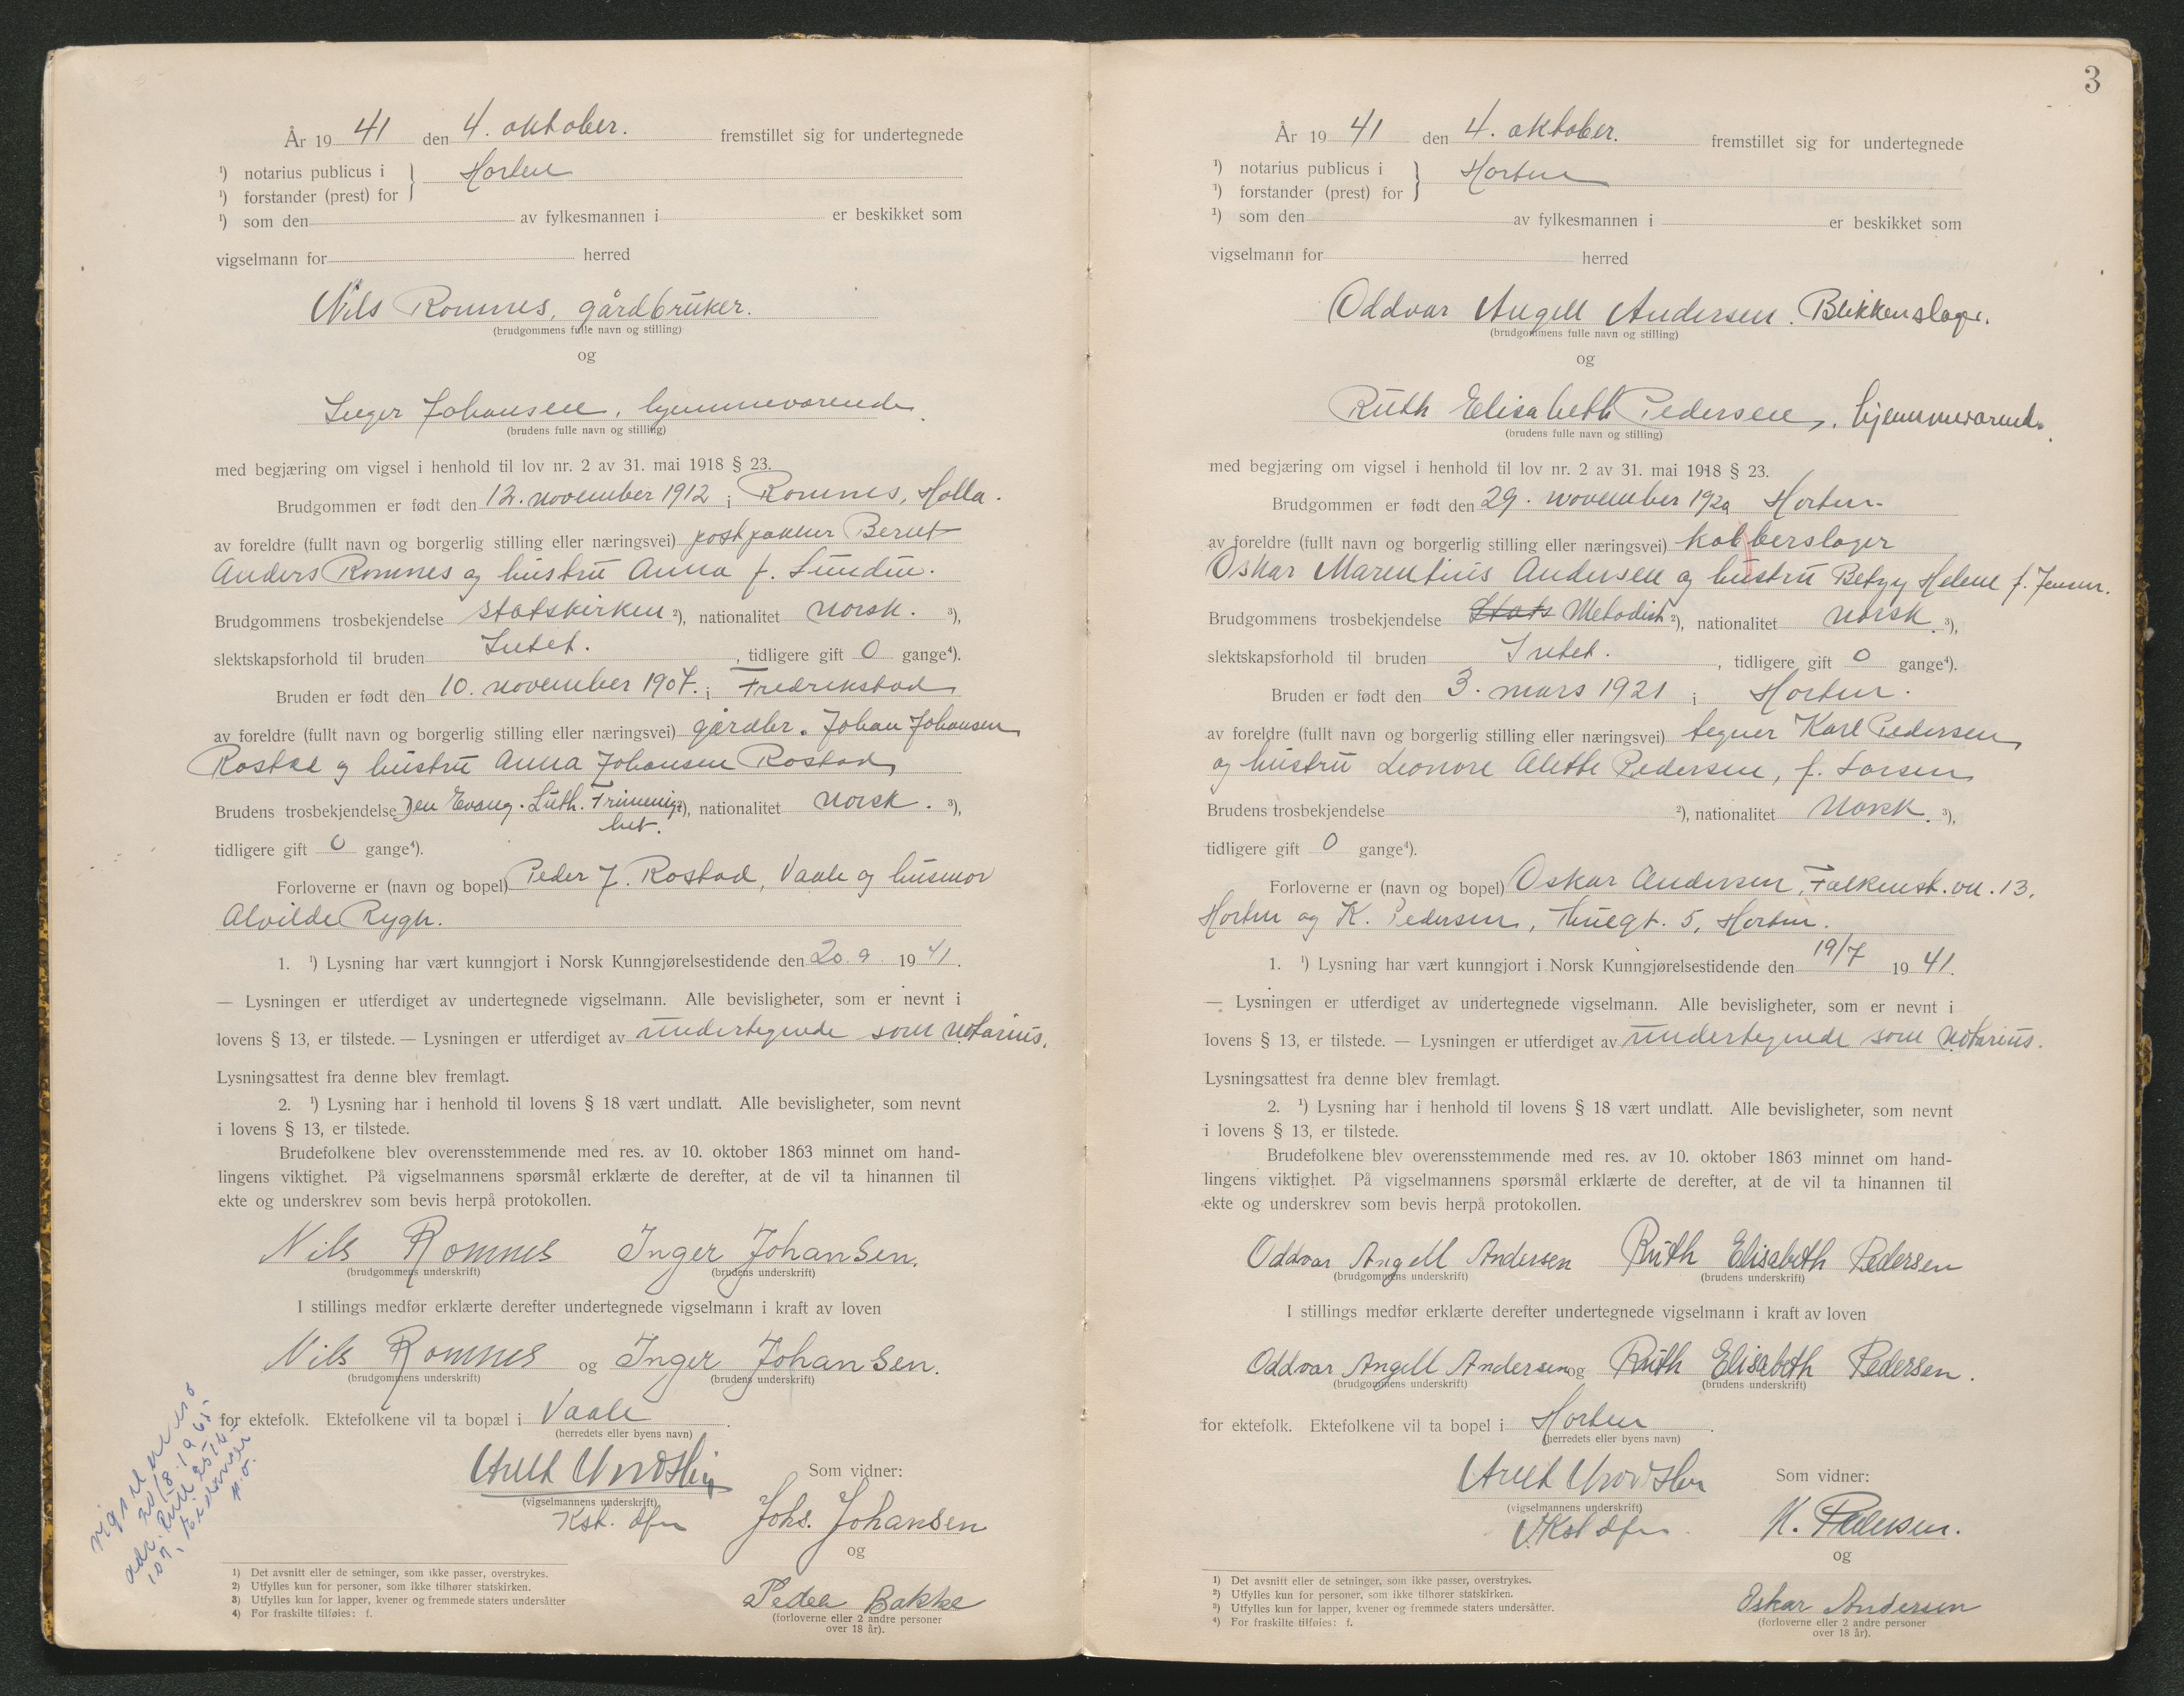 År 1941 den 4. oktober. fremstillet sig for undertegnede
¹) notarius publicus i } Horten
¹) forstander (prest) for
¹) som den av fylkesmannen i er beskikket som
vigselmann for herred
Nils Romnes, gårdbruker.
(brudgommens fulle navn og stilling)
og
Inger Johansen, hjemmeværende.
(brudens fulle navn og stilling)
med begjæring om vigsel i henhold til lov nr. 2 av 31. mai 1918 § 23.
Brudgommen er født den 12. november 1912 i Romnes, Holla.
av foreldre (fullt navn og borgerlig stilling eller næringsvei) postpakker Bernt
Anders Romnes og hustru Anna f. Lunden.
Brudgommens trosbekjendelse statskirken ²), nationalitet norsk. ³),
slektskapsforhold til bruden Intet. , tidligere gift 0 gange⁴).
Bruden er født den 10. november 1907. i Fredrikstad
av foreldre (fullt navn og borgerlig stilling eller næringsvei) gårdbr. Johan Johansen
Rostad og hustru Anna Johansen Rostad
Brudens trosbekjendelse Den Evang. Luth. Frimenig- ²), nationalitet norsk. ³),
het.
tidligere gift 0 gange⁴).
Forloverne er (navn og bopel) Peder J. Rostad, Vaale og husmor
Alvilde Rygh.
1. ¹) Lysning har vært kunngjort i Norsk Kunngjørelsestidende den 20.9 1941.
— Lysningen er utferdiget av undertegnede vigselmann. Alle bevisligheter, som er nevnt i
lovens § 13, er tilstede. — Lysningen er utferdiget av undertegnede som notarius.
Lysningsattest fra denne blev fremlagt.
2. ¹) Lysning har i henhold til lovens § 18 vært undlatt. Alle bevisligheter, som nevnt
i lovens § 13, er tilstede.
Brudefolkene blev overensstemmende med res. av 10. oktober 1863 minnet om hand-
lingens viktighet. På vigselmannens spørsmål erklærte de derefter, at de vil ta hinannen til
ekte og underskrev som bevis herpå protokollen.
Nils Romnes Inger Johansen.
(brudgommens underskrift) (brudens underskrift)
I stillings medfør erklærte derefter undertegnede vigselmann i kraft av loven
Nils Romnes og Inger Johansen.
(brudgommens underskrift) (brudens underskrift)
for ektefolk. Ektefolkene vil ta bopæl i Vaale.
(herredets eller byens navn)
Som vidner:
(vigselmannens underskrift)
Kst. Johs. Johansen
og
Peder Bakke
(forloverne eller 2 andre personer
over 18 år).
20/8. 1965
1) Det avsnitt eller de setninger, som ikke passer, overstrykes.
2) Utfylles kun for personer, som ikke tilhører statskirken.
3) Utfylles kun for lapper, kvener og fremmede staters undersåtter
4) For fraskilte tilføies: f.
3
År 1941 den 4. oktober. fremstillet sig for undertegnede
¹) notarius publicus i } Horten
¹) forstander (prest) for
¹) som den av fylkesmannen i er beskikket som
vigselmann for herred
Oddvar Angell Andersen. Blikkenslager.
(brudgommens fulle navn og stilling)
og
Ruth Elisabeth Pedersen, hjemmeværende.
(brudens fulle navn og stilling)
med begjæring om vigsel i henhold til lov nr. 2 av 31. mai 1918 § 23.
Brudgommen er født den 29. november 1920 Horten.
av foreldre (fullt navn og borgerlig stilling eller næringsvei) kobberslager
Oskar Marentius Andersen og hustru Betzy Helene f. Jensen.
Brudgommens trosbekjendelse Stats Metodist ²), nationalitet norsk. ³),
slektskapsforhold til bruden Intet. , tidligere gift 0 gange⁴).
Bruden er født den 3. mars 1921 i Horten.
av foreldre (fullt navn og borgerlig stilling eller næringsvei) tegner Karl Pedersen
og hustru Leonore Alette Pedersen, f. Larsen
Brudens trosbekjendelse ²), nationalitet Norsk. ³),
tidligere gift 0 gange⁴).
Forloverne er (navn og bopel) Oskar Andersen, Falkenst.vn. 13,
Horten og K. Pedersen, Thuegt. 5, Horten.
1. ¹) Lysning har vært kunngjort i Norsk Kunngjørelsestidende den 19/7 1941.
— Lysningen er utferdiget av undertegnede vigselmann. Alle bevisligheter, som er nevnt i
lovens § 13, er tilstede. — Lysningen er utferdiget av undertegnede som notarius.
Lysningsattest fra denne blev fremlagt.
2. ¹) Lysning har i henhold til lovens § 18 vært undlatt. Alle bevisligheter, som nevnt
i lovens § 13, er tilstede.
Brudefolkene blev overensstemmende med res. av 10. oktober 1863 minnet om hand-
lingens viktighet. På vigselmannens spørsmål erklærte de derefter, at de vil ta hinannen til
ekte og underskrev som bevis herpå protokollen.
Oddvar Angell Andersen Ruth Elisabeth Pedersen
(brudgommens underskrift) (brudens underskrift)
I stillings medfør erklærte derefter undertegnede vigselmann i kraft av loven
Oddvar Angell Andersen og Ruth Elisabeth Pedersen.
(brudgommens underskrift) (brudens underskrift)
for ektefolk. Ektefolkene vil ta bopel i Horten.
(herredets eller byens navn)
Som vidner:
(vigselmannens underskrift)
Kst K. Pedersen.
og
Oskar Andersen
(forloverne eller 2 andre personer
over 18 år).
1) Det avsnitt eller de setninger, som ikke passer, overstrykes.
2) Utfylles kun for personer, som ikke tilhører statskirken.
3) Utfylles kun for lapper, kvener og fremmede staters undersåtter.
4) For fraskilte tilføies: f.